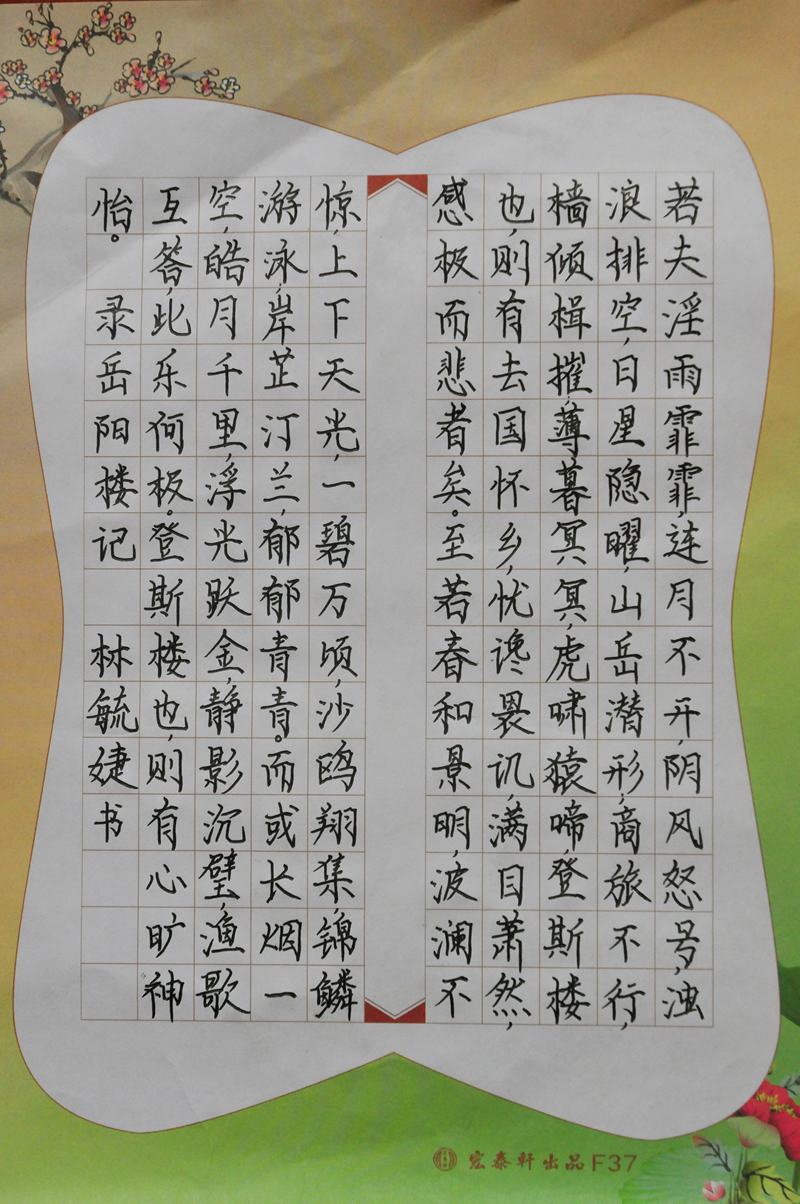 若夫淫雨霏霏,连月不开,阴风怒号,浊
浪排空,日星隐曜,山岳潜形,商旅不行,
樯倾楫摧,薄暮冥冥,虎啸猿啼,登斯楼
也,则有去国怀乡,忧谗畏讥,满目萧然,
感极而悲者,矣。至若春和景明,波澜不
惊,上下天光,一碧万顷,沙鸥翔集,锦鳞
游泳,岸芷汀兰,郁郁青青。而或长烟一
空,皓月千里,浮光跃金,静影沉璧,渔歌
互答,此乐何极。登斯楼也,则有心旷神
怡。 录岳阳楼记 林毓婕书
宏泰轩出品F37